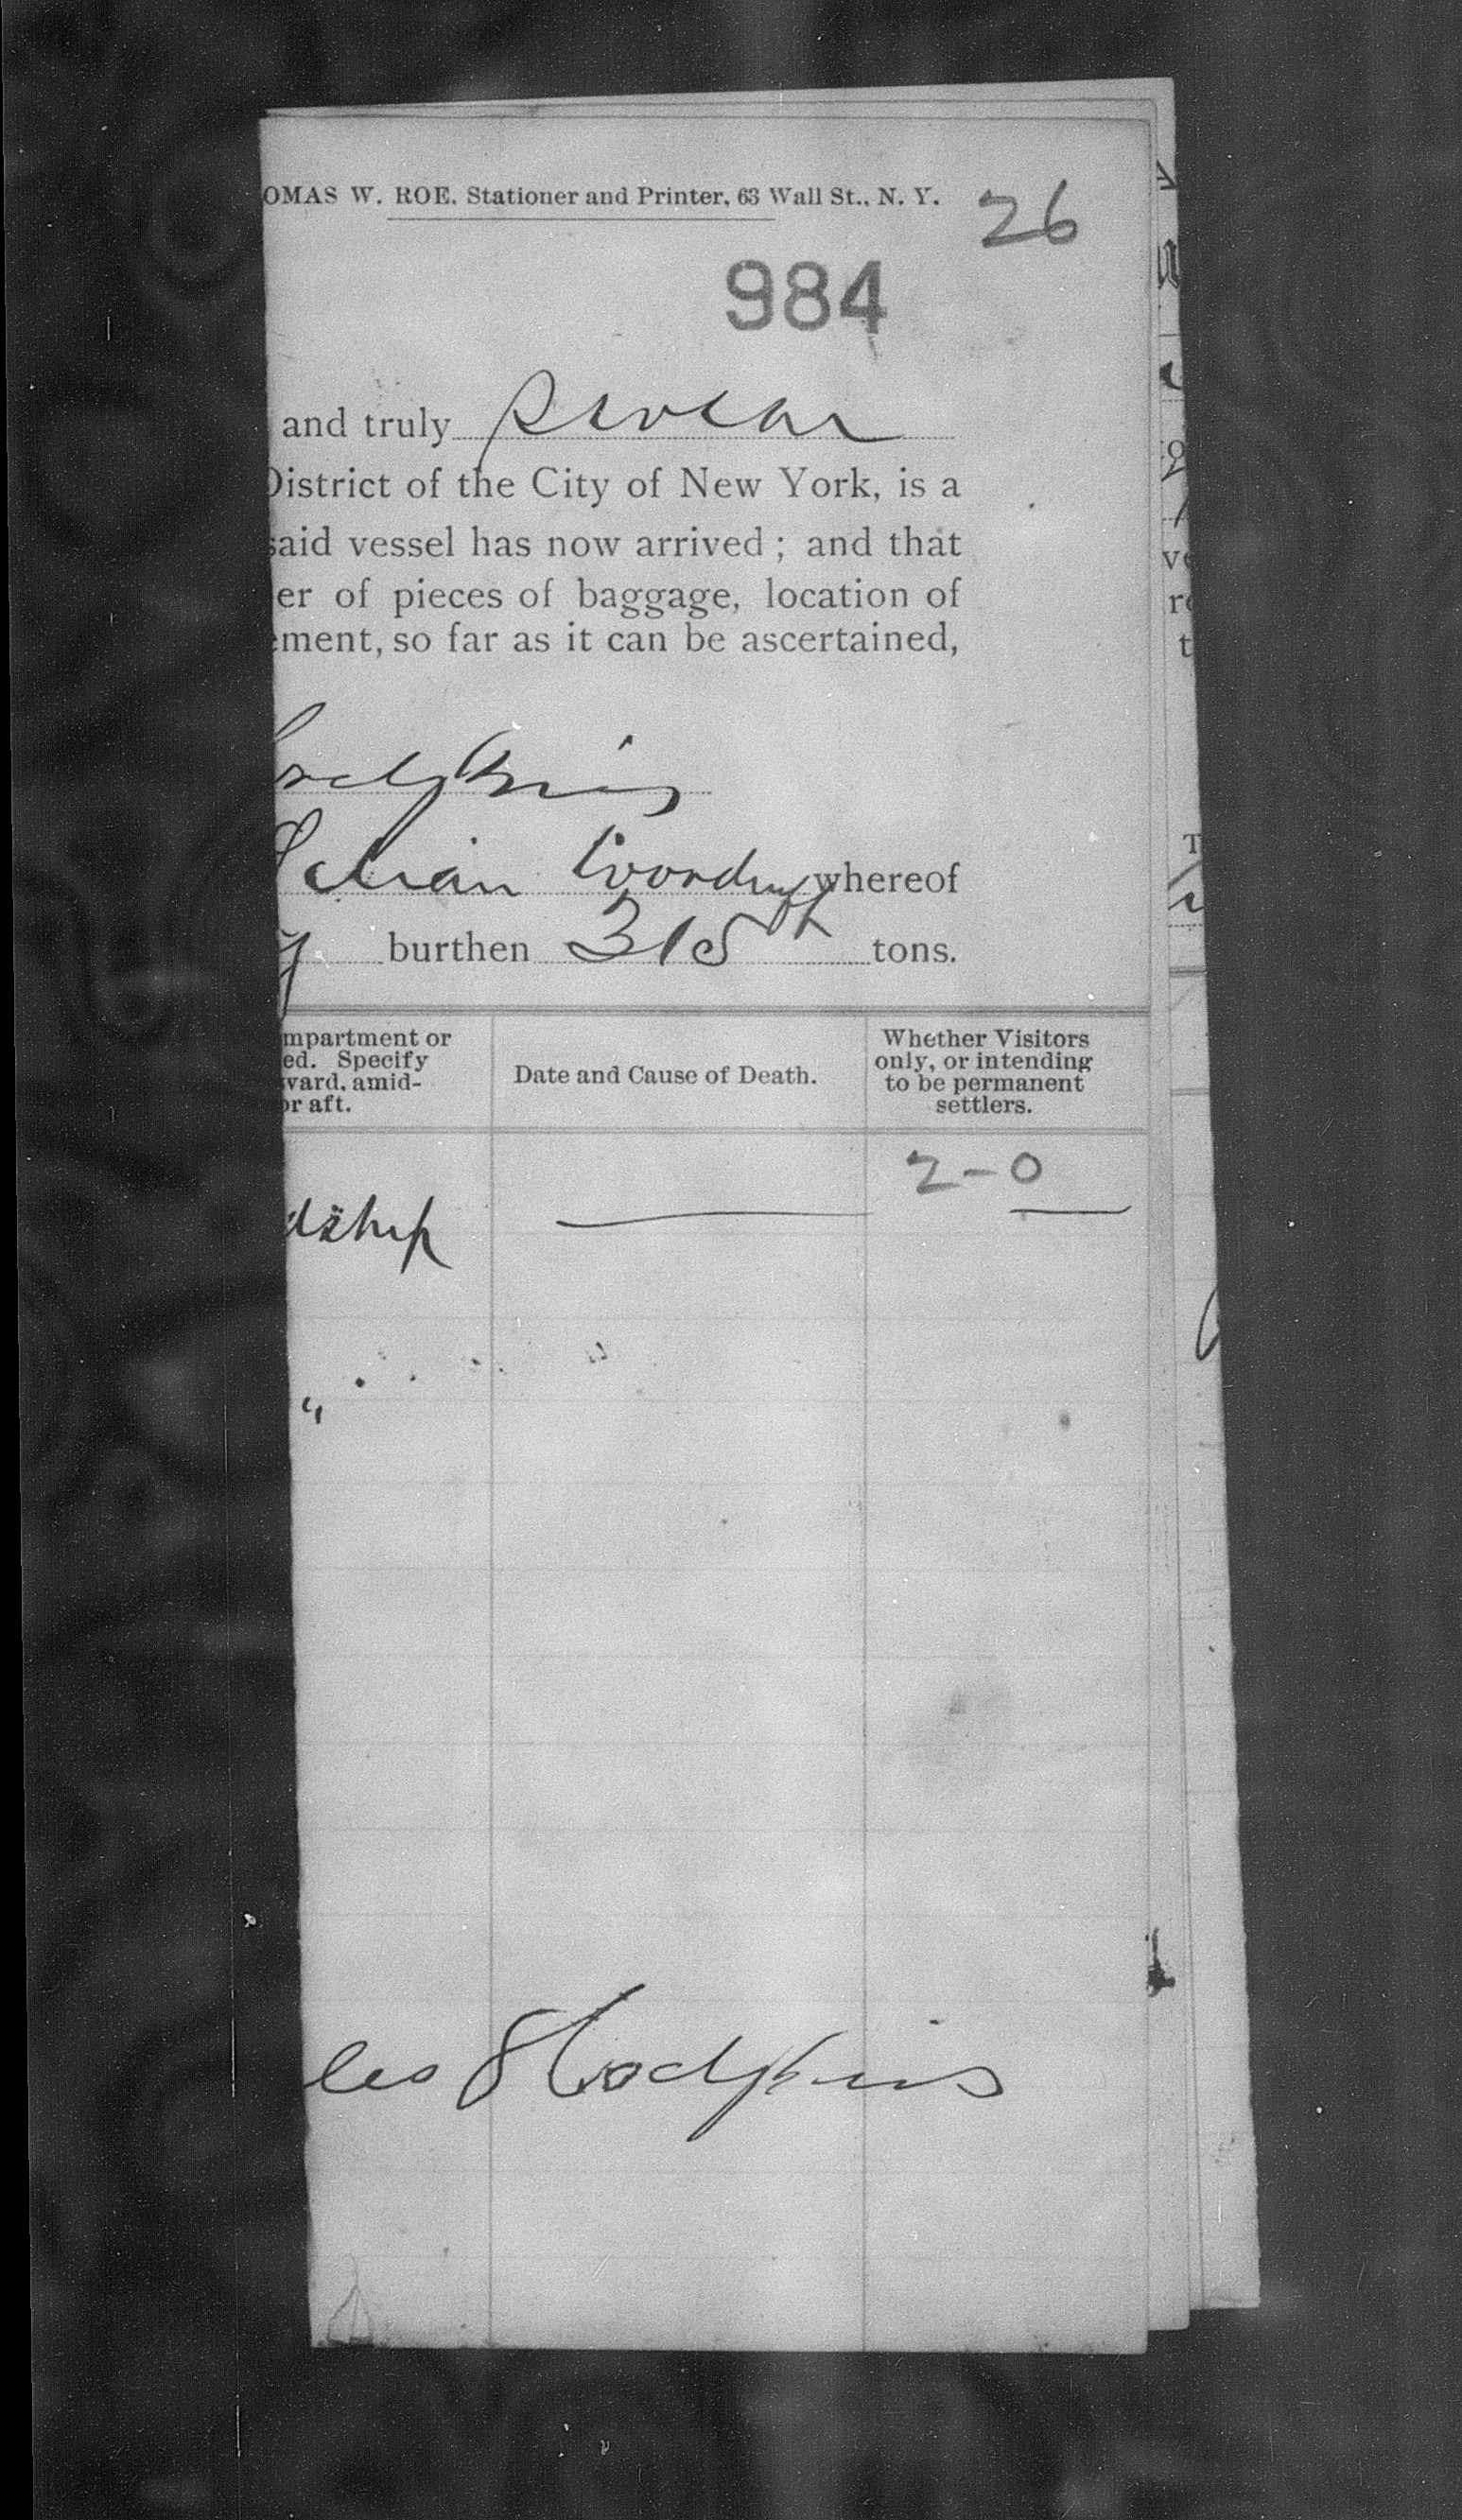 OMAS W. ROE, Stationer and Printer, 63 Wall St., N. Y.
26
984
and truly swear
District of the City of New York, is a
said vessel has now arrived; and that
er of pieces of baggage, location of
ement, so far as it can be ascertained,
odgkins
Adrian Woodruff whereof
y burthen 315 tons.
mpartment or
ed. Specify
ward, amid-
or aft.
Date and Cause of Death.
Whether Visitors
only, or intending
to be permanent
settlers.
2-0
dship
"
les Hodgkins